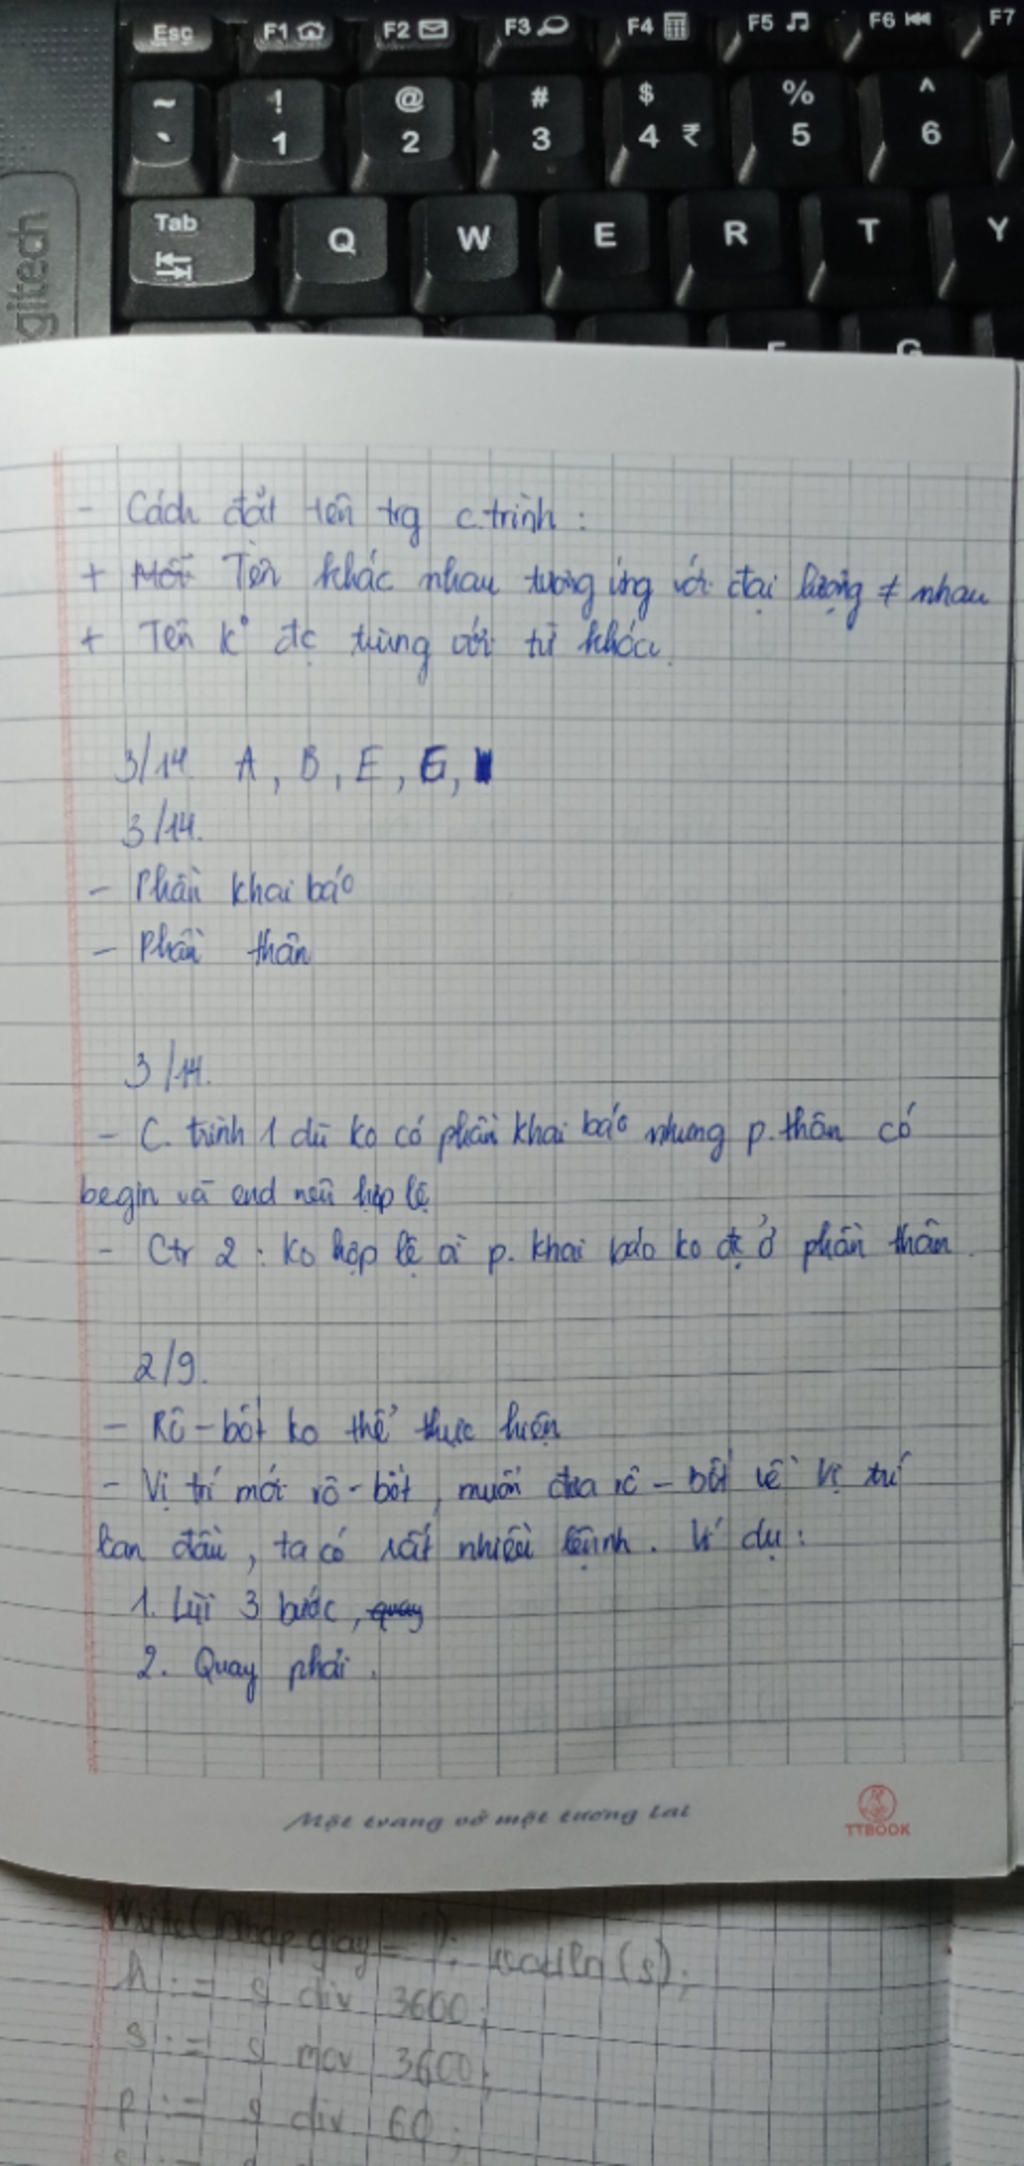 Esc F1 F2 F3 F4 F5 F6 F7
~ ! @ # $ % ^
` 1 2 3 4 ₹ 5 6
Tab Q W E R T Y
gitech
F G
- Cách đặt tên trg c.trình :
+ Một Tên khác nhau tương ứng với đại lượng ≠ nhau
+ Tên k° đc trùng với từ khóa.
3/14 A, B, E, G,
3/14.
- Phần khai báo
- Phần thân
3/14.
- C. trình 1 dù ko có phần khai báo nhưng p. thân có
begin và end nên hợp lệ
- Ctr 2 : Ko hợp lệ vì p. khai báo ko đc ở phần thân.
2/9.
- Rô-bốt ko thể thực hiện
- Vị trí mới rô-bốt, muốn đưa rô-bốt về vị trí
ban đầu, ta có rất nhiều lệnh. Ví dụ:
1. Lùi 3 bước, quay
2. Quay phải.
Một trang vở một tương lai
TTBOOK
Write('Nhap giay = '); readln(s);
h := s div 3600;
s := s mov 3600;
p := s div 60;